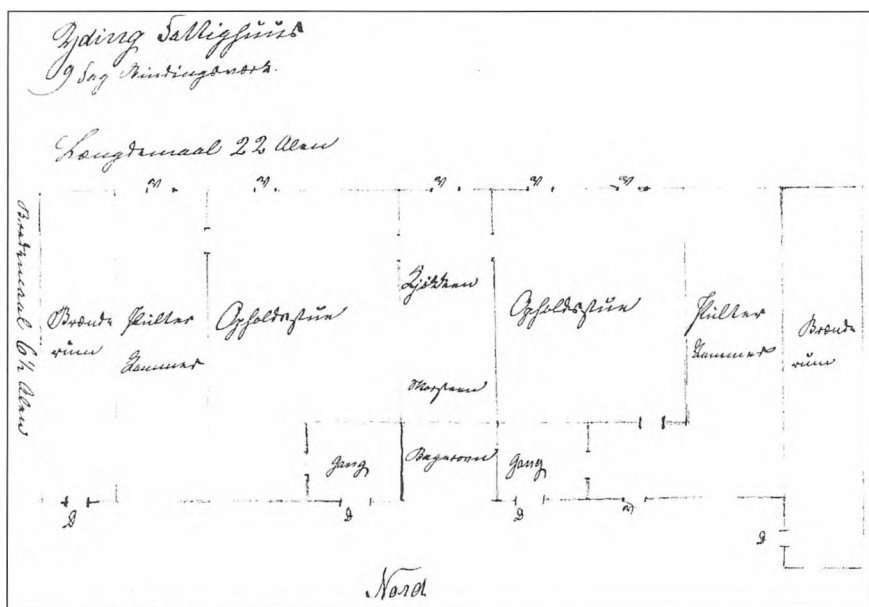 Yding Fattighuus
9 Fag Bindingsværk.
Længdemaal 22 Alen
V V V V V
Breddemaal 6½ Alen
Brænde
rum
Pulter
Kammer
Opholdsstue
Kjøkken
Opholdsstue
Pulter
Kammer
Brænde
rum
Skorsteen
Gang
Bageroven
Gang
D D D V
D
Nord